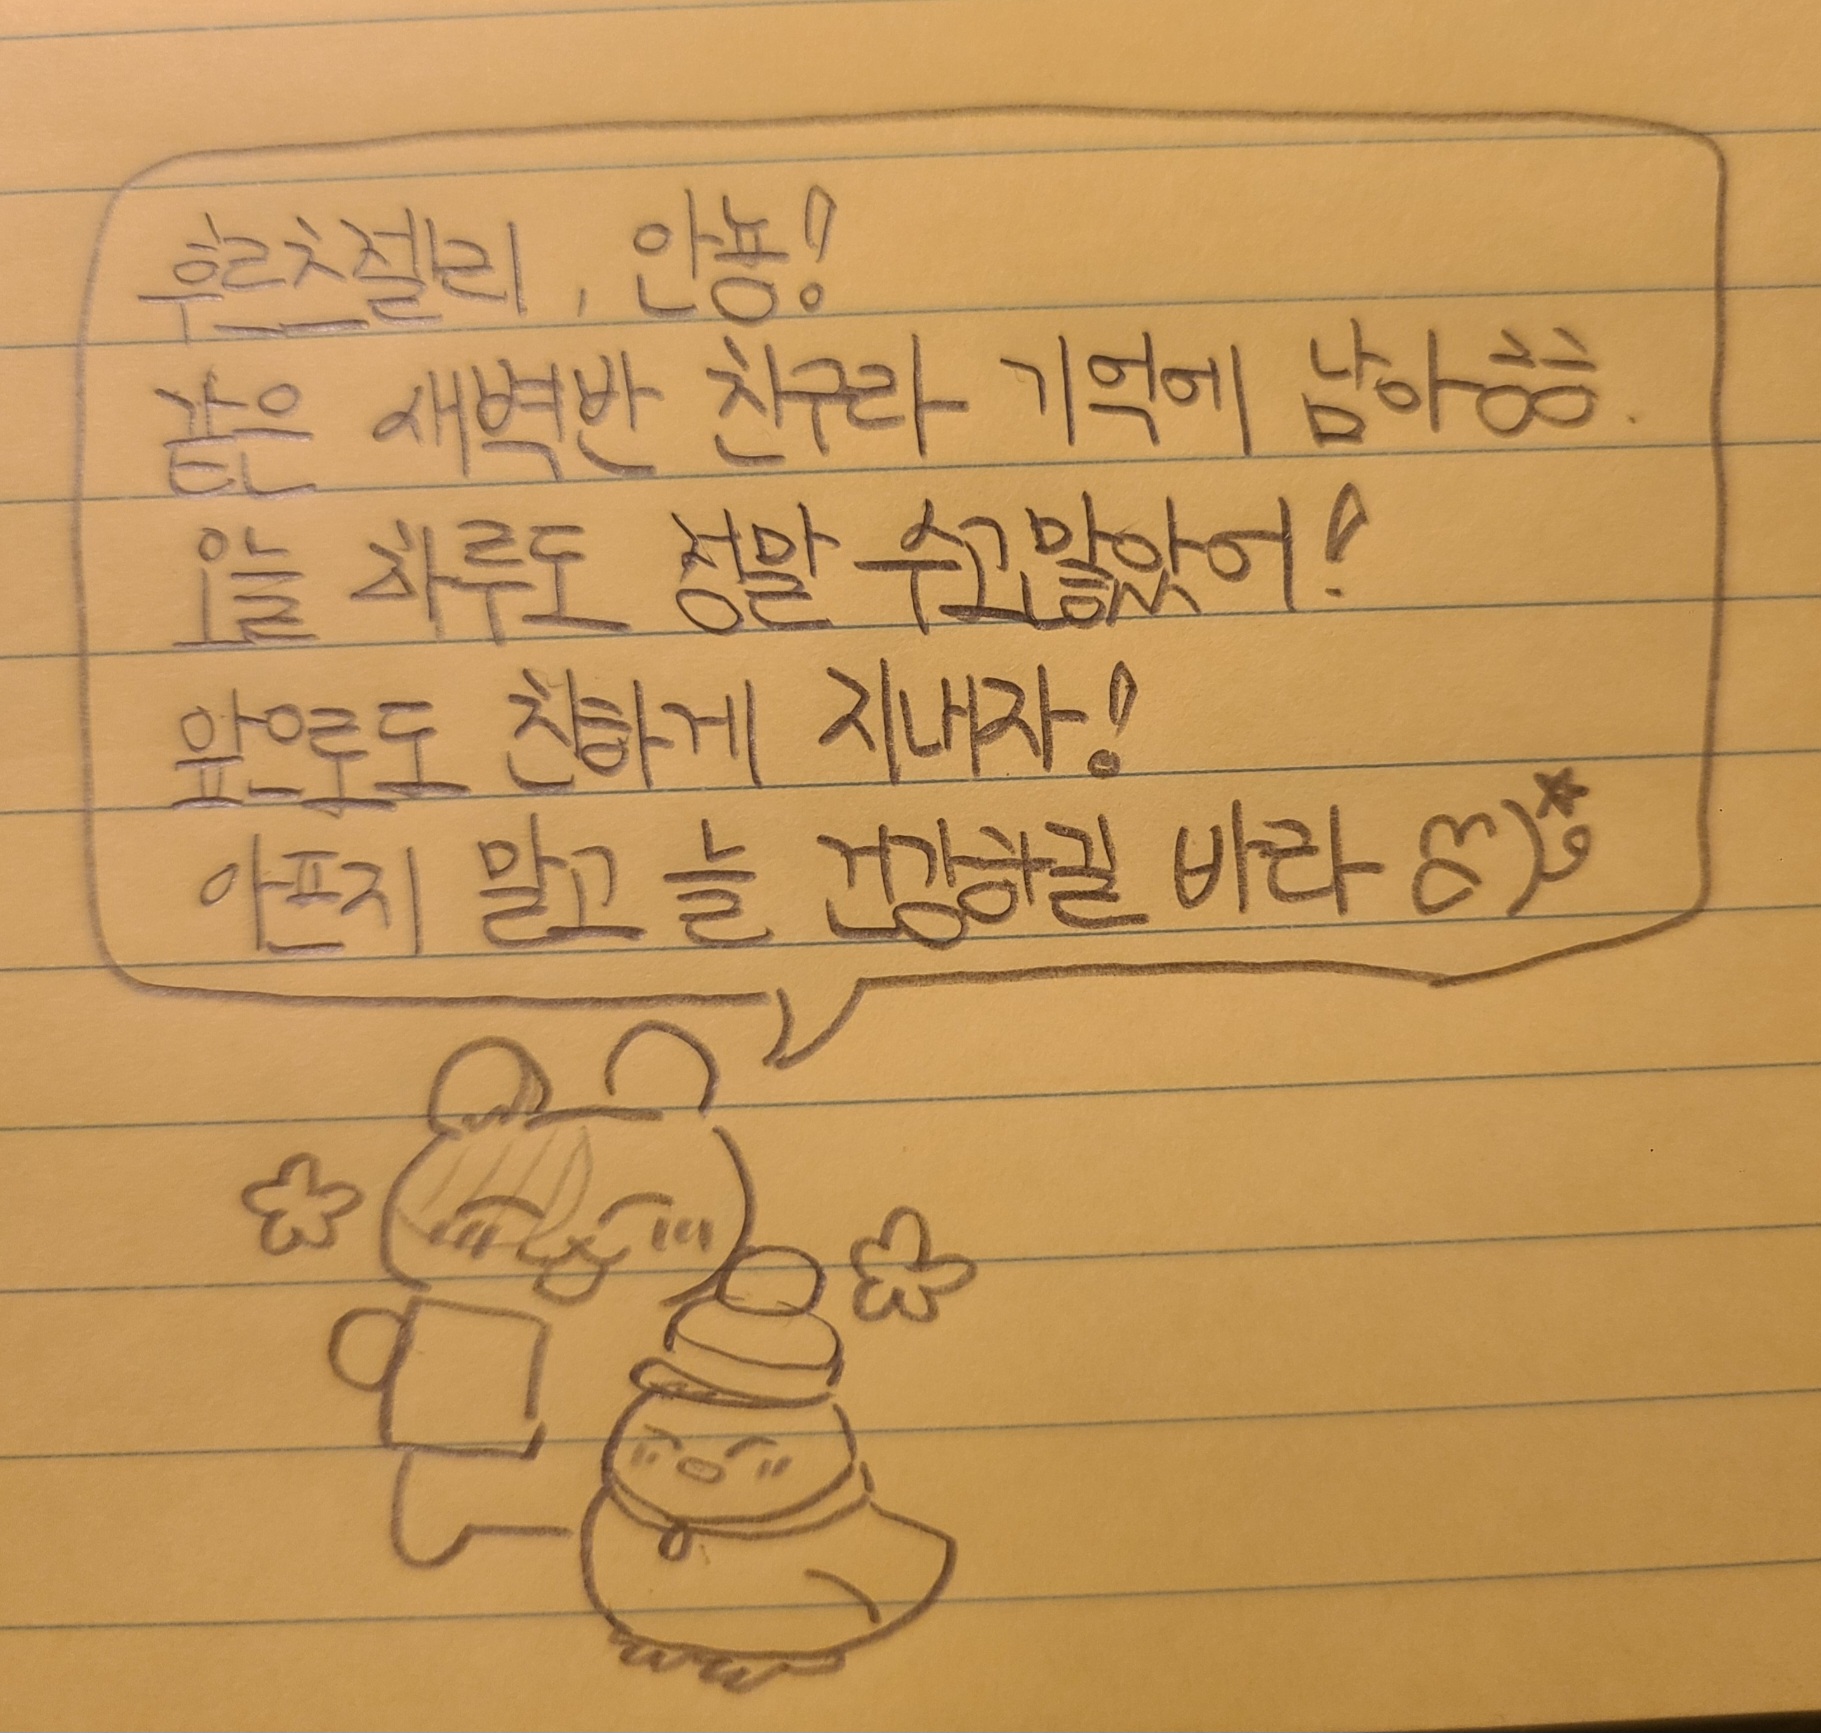 후르츠젤리, 안뇽!
같은 새벽반 친구라 기억에 남아 흥흥.
오늘 하루도 정말 수고많았어!
앞으로도 친하게 지내자!
아프지 말고 늘 건강하길 바라